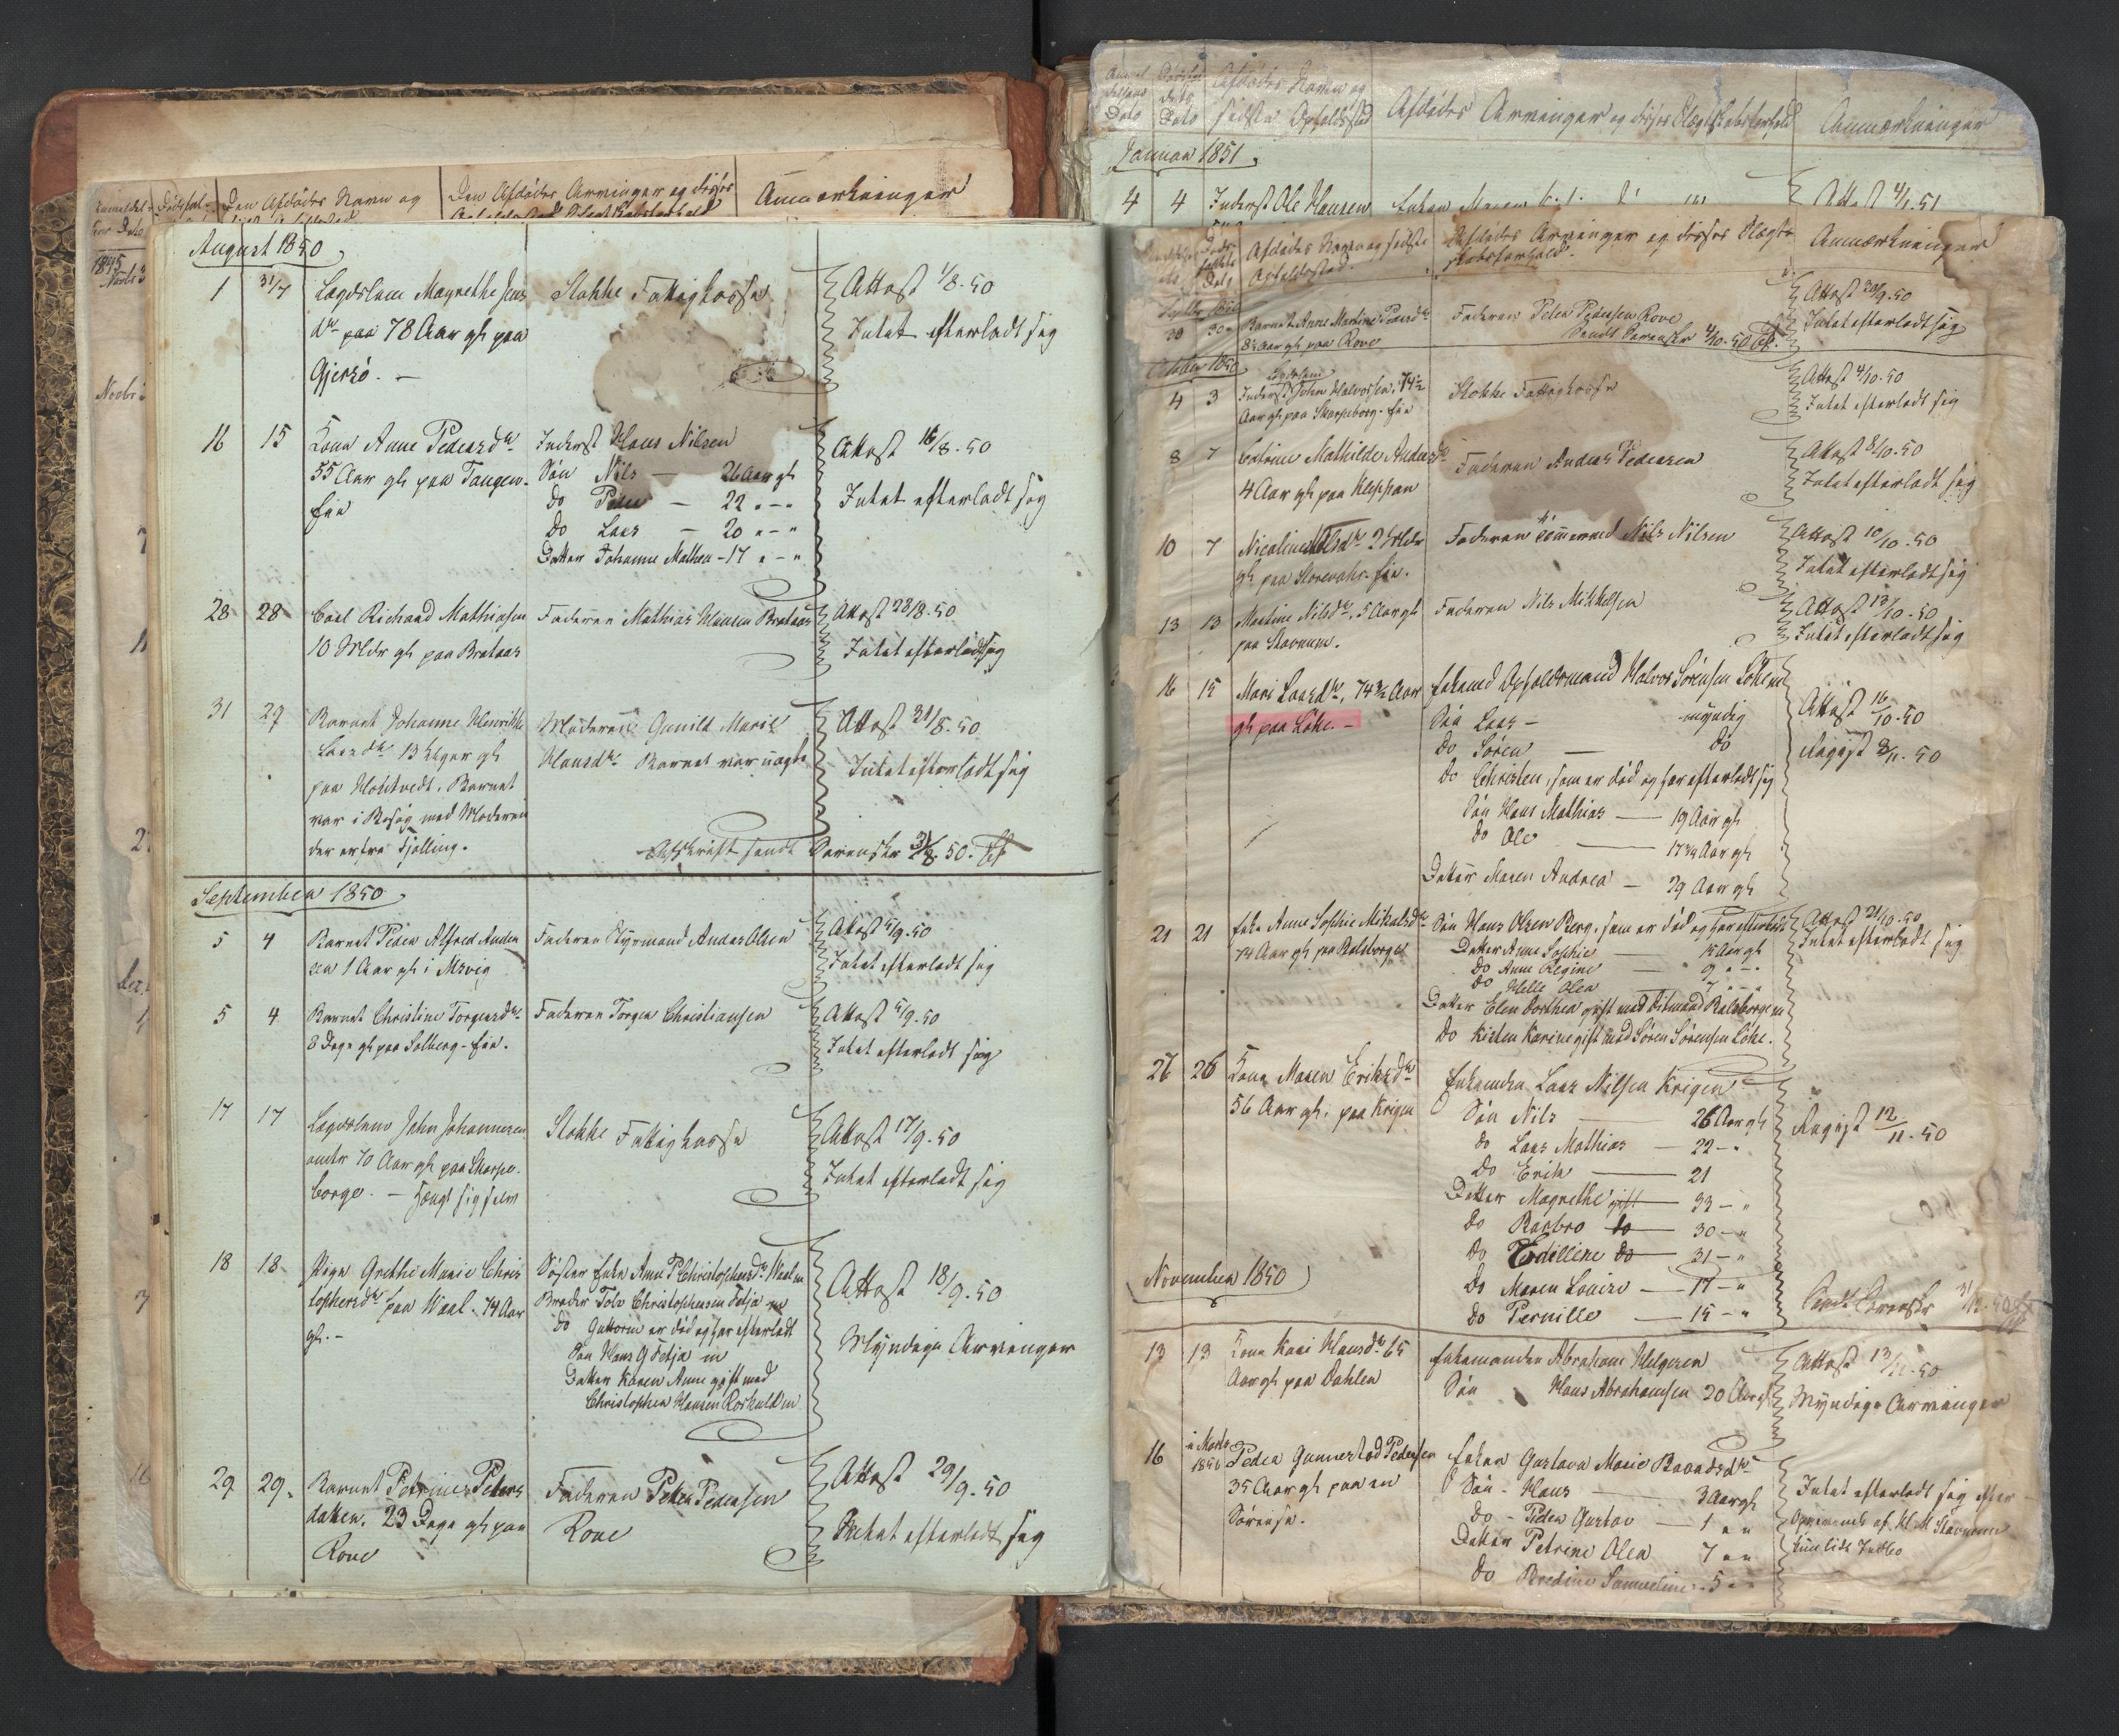 Den Afdødes Navn og
Den Afdødes Arvinger og disses
Anmærkninger
1845
August 1850
1 31/7 Lægdslem Magrethe Jens
dtr paa 78 Aar gl paa
Gjerzø. —
Stokke Fattigkasse
Attest 1/8. 50
Intet efterladt sig
16 15 Kona Anne Pedersdtr
55 Aar gl paa Tangen-
eie
Inderst Hans Nilsen
Søn Nils — 26 Aar gl
Do Peder — 22 " — "
Do Lars — 20 " — "
Datter Johanne Mathea - 17 " — "
Attest 16/8. 50
Intet efterladt sig
28 28 Carl Richard Mathiasen
10 Mdr gl paa Brataas
Faderen Mathias Hansen Brataas
Attest 28/8. 50
Intet efterladt sig
31 29 Barnet Johanne Henrikke
Larsdtr 13 Uger gl
paa Holtvedt. Barnet
var i Besøg med Moderen
der er fra Tjølling.
Moderen Gunild Marie
Hansdtr Barnet var uægte
Attest 31/8. 50
Intet efterladt sig
Afskrift sendt Sorenskr 31/8. 50.
September 1850
5 4 Barnet Peder Alfred Ander
sen 1 Aar gl i Melsvig
Faderen Styrmand Anders Olsen
Attest 5/9. 50
Intet efterladt sig
5 4 Barnet Christine Torgersdtr
8 Dage gl paa Solberg-eie.
Faderen Torger Christiansen
Attest 5/9. 50
Intet efterladt sig
17 17 Lægdslem John Johannesen
omtr 70 Aar gl paa Skarpe-
borge. — Hængt sig selv
Stokke Fattigkasse
Attest 17/9. 50
Intet efterladt sig
18 18 Pige Grethe Marie Chris
tophersdtr paa Waal. 74 Aar
gl. —
Søster Enke Anne P Christophersdtr Waal m
Broder Tolv Christophersen Fetja m
Do Guttorm er død og har efterladt
Søn Hans G Fetja m
Datter Karen Anne gift med
Christopher Hansen Roskuld m
Attest 18/9. 50
Myndige Arvinger
29 29. Barnet Petrine Peders
datter. 23 Dage gl paa
Rove
Faderen Peder Pedersen
Rove
Attest 29/9. 50
Intet efterladt sig
Afdødes Navn og
sidste Opholdssted
Afdødes Arvinger og disses Slægtskabsforhold
Anmærkninger
Januar 1851
4 4 Inderst Ole Hansen
Attest 4/1. 51
Afdødes Navn og sidste
Opholdssted.
Afdødes Arvinger og disses Slægt-
skabsforhold.
Anmærkninger
30 30 Barnet Anne Martine Pedersdtr
8½ Aar gl paa Rove
Faderen Peder Pedersen Rove
Sendt Sorenskr 4/10. 50
Attest 30/9. 50
Intet efterladt sig
October 1850
4 3 Lægdslem
Inderst John Halvorsen, 74½
Aar gl paa Skarpeborg-eie
Stokke Fattigkasse
Attest 4/10. 50
Intet efterladt sig
8 7 Cathrine Mathilde Andersdtr
4 Aar gl paa Kleppan
Faderen Anders Pedersen
Attest 8/10. 50
Intet efterladt sig
10 7 Nicoline Nilsdtr 2 Mdr
gl paa Storevahr-eie.
Faderen Tømmermd Nils Nilsen
Attest 10/10. 50
Intet efterladt sig
13 13 Martine Nilsdtr. 5 Aar gl
paa Stavnum.
Faderen Nils Mikkelsen
Attest 13/10. 50
Intet efterladt sig
16 15 Mari Larsdtr, 74¾ Aar
gl paa Løke. —
Enkemd Opholdsmand Halvor Sørensen Løke m
Søn Lars — myndig
Do Søren — do
Do Christen, som er død og har efterladt sig
Søn Hans Mathias — 19 Aar gl
Do Ole — 17¾ Aar gl
Datter Maren Andrea — 29 Aar gl
Attest 16/10. 50
Angivt 8/11. 50
21 21 Enke Anne Sophie Mikalsdtr
74 Aar gl paa Ralsborge
Søn Hans Olsen Berg, som er død og har efterladt
Datter Anne Sophie — 15 Aar gl
Do Anne Regine — 9 " — "
Do Helle Olea — 7 " — "
Datter Elen Dorthea gift med Ditmand Ralsborge m
Do Kirsten Karine gift med Søren Sørensen Løke.
Attest 21/10. 50
Intet efterladt sig
27 26 Kona Maren Eriksdtr
56 Aar gl. paa Krigen
Enkemden Lars Nilsen Krigen
Søn Nils — 26 Aar gl
Do Lars Mathias — 22 — "
Do Erik — 21
Datter Magrethe gift — 33 — "
Do Barbro do — 30 — "
Do Edilline do — 31 — "
Do Maren Lovise — 17 — "
Do Pernille — 15 — "
Angivt 12/11. 50
November 1850
Sendt Sorenskr
13 13 Kona Kari Hansdtr 65
Aar gl paa Dahlen
Enkemanden Abraham Helgesen
Søn Hans Abrahamsen 20 Aar gl
Attest 13/11. 50
Myndige Arvinger
16 i Marts
1850 Peder Gunnerstad Pedersen
35 Aar gl paa en
Sørejse.
Enken Gustava Marie Baardsdtr
Søn - Hans — 3 Aar gl
Do - Peder Gustav — 1 " "
Datter Petrine Olea 7 " "
Do Bredine Samueline - 5 " "
Intet efterladt sig efter
Opgivende af Kl. M Stavnum